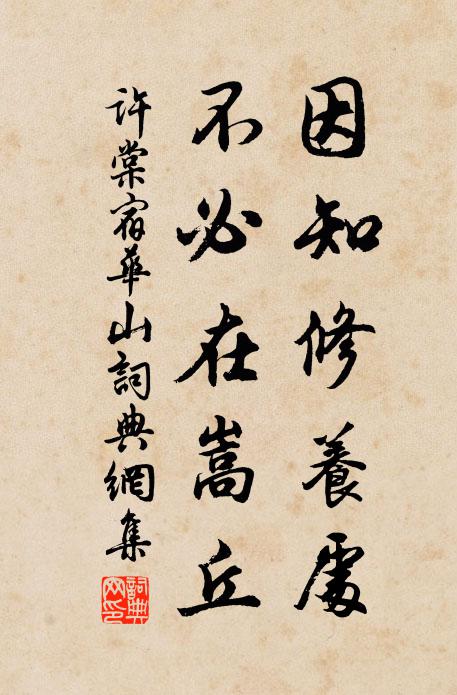 因知修養處
不必在嵩丘
許棠宿華山詞典網集
詞典網印